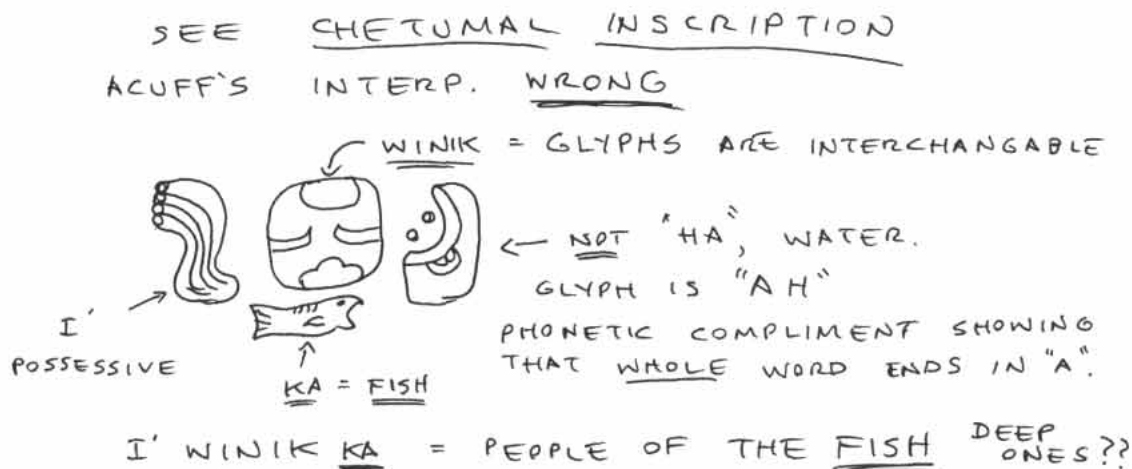 SEE CHETUMAL INSCRIPTION
ACUFF'S INTERP. WRONG
WINIK = GLYPHS ARE INTERCHANGABLE
NOT "HA", WATER.
GLYPH IS "AH"
PHONETIC COMPLIMENT SHOWING
THAT WHOLE WORD ENDS IN "A".
I'
POSSESSIVE
KA = FISH
I' WINIK KA = PEOPLE OF THE FISH DEEP ONES??